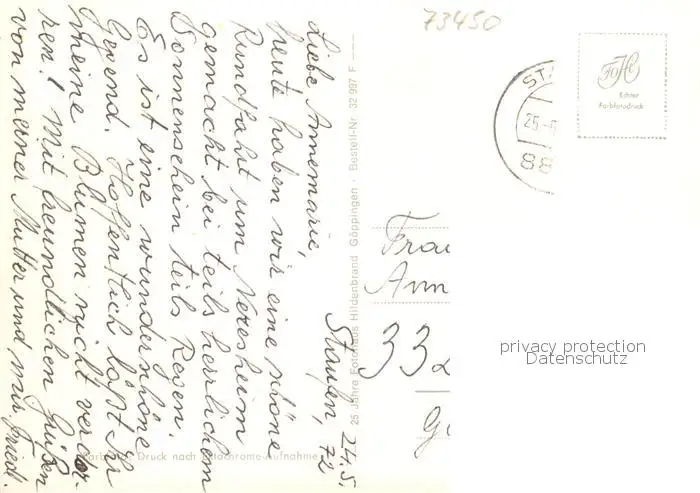 73450
FoHi
Echter
Farbfotodruck
ST
25.-5
88
Staufen, 24.5.
72
Liebe Annemarie,
heute haben wir eine schöne
Rundfahrt um Neresheim
gemacht bei teils herrlichem
Sonnenschein teils Regen.
Es ist eine wunderschöne
Gegend. Hoffentlich läßt Ihr
meine Blumen nicht verdor-
ren! Mit freundlichen Grüßen
von meiner Mutter und mir Fried.
25 Jahre Fotohaus Hildenbrand Göppingen · Bestell-Nr. 32 997 F
Druck nach Aufnahme
Frau
Ann
332
privacy protection
Datenschutz